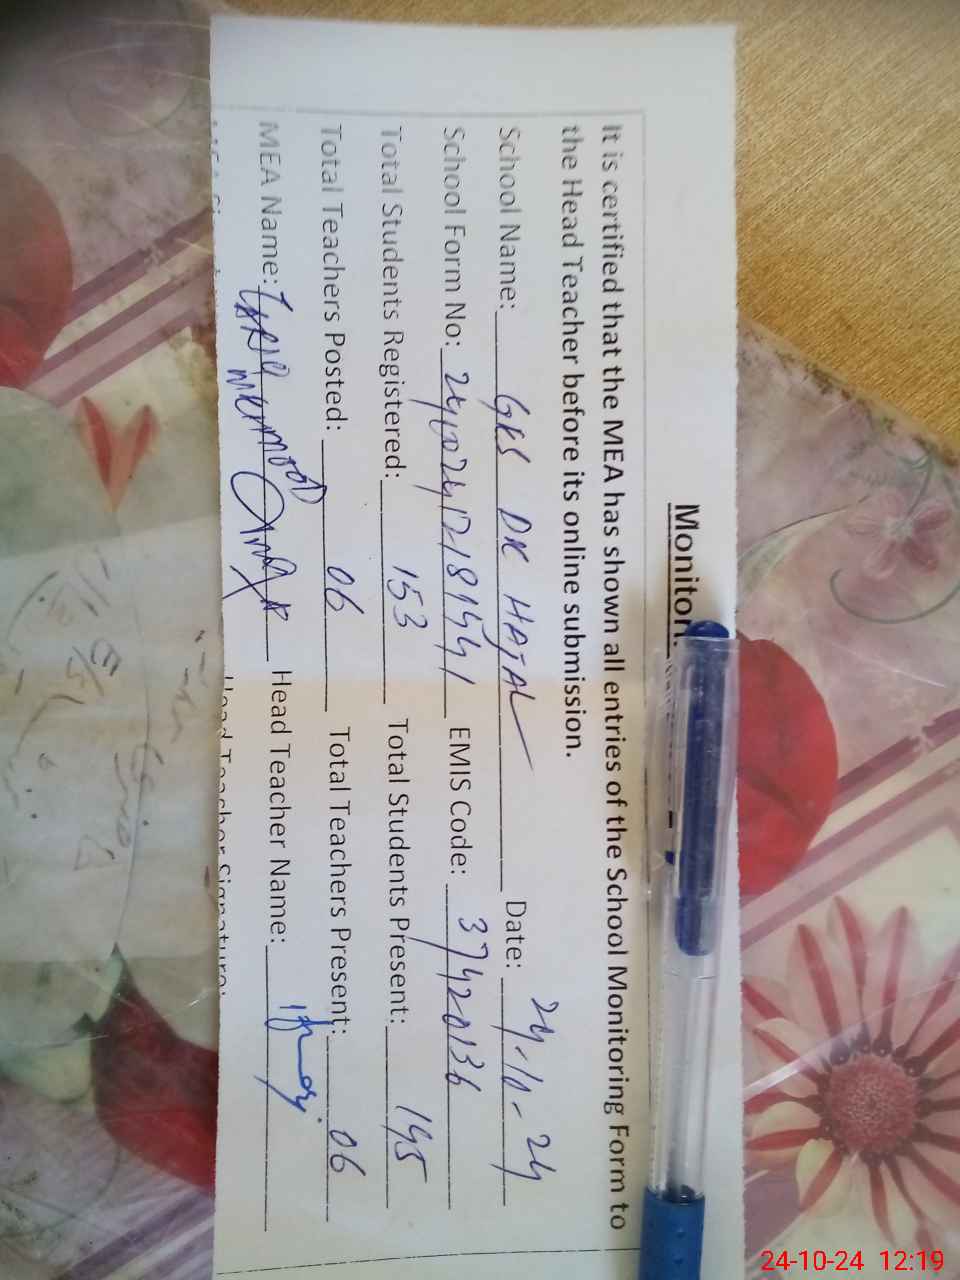 It is certified that the MEA has shown all entries of the School Monitoring Form to
the Head Teacher before its online submission.
School Name: DK HAJAL Date: 24-10-24
School Form No: EMIS Code: 37420136
Total Students Registered: 153 Total Students Present: 145
Total Teachers Posted: 06 Total Teachers Present: 06
MEA Name: MEHMOOD Head Teacher Name:
Head Teacher Signature:
24-10-24 12:19